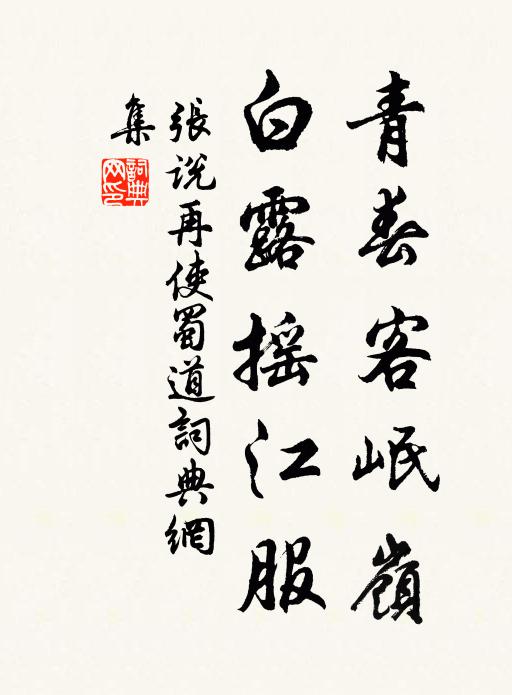 青春客岷嶺
白露搖江服
張説再使蜀道詞典網
集
詞典
网印